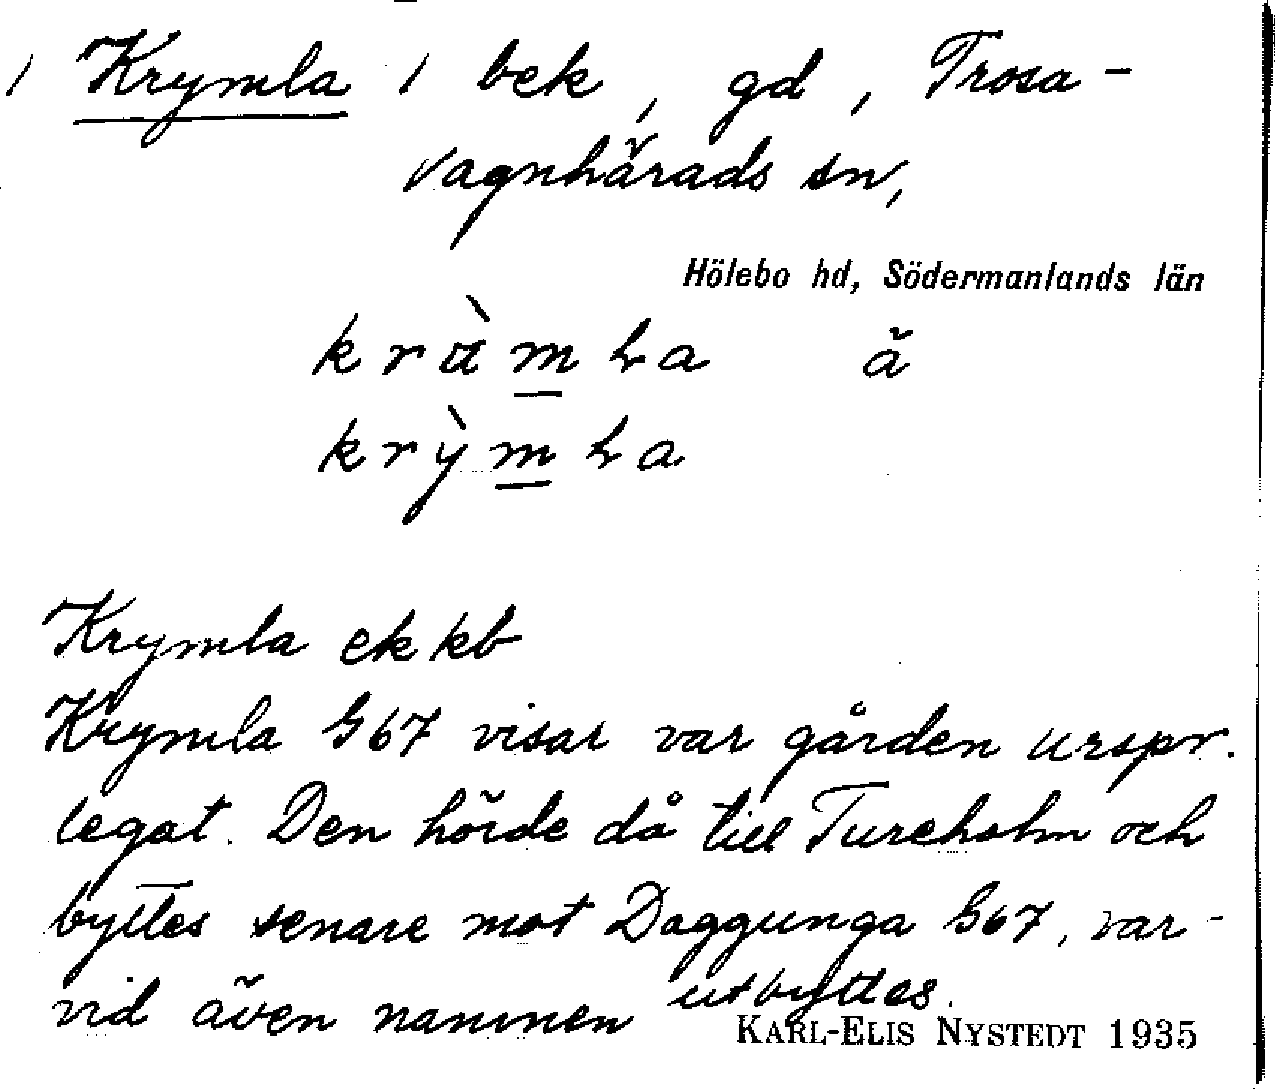 / Krymla / bek, gd, Trosa-
vagnhärads sn,
Hölebo hd, Södermanlands län
a᷈
Krymla ek kb
Krymla G67 visar var gården urspr.
legat. Den hörde då till Tureholm och
byttes senare mot Daggunga G67, var-
vid även namnen utbyttes.
KARL-ELIS NYSTEDT 1935